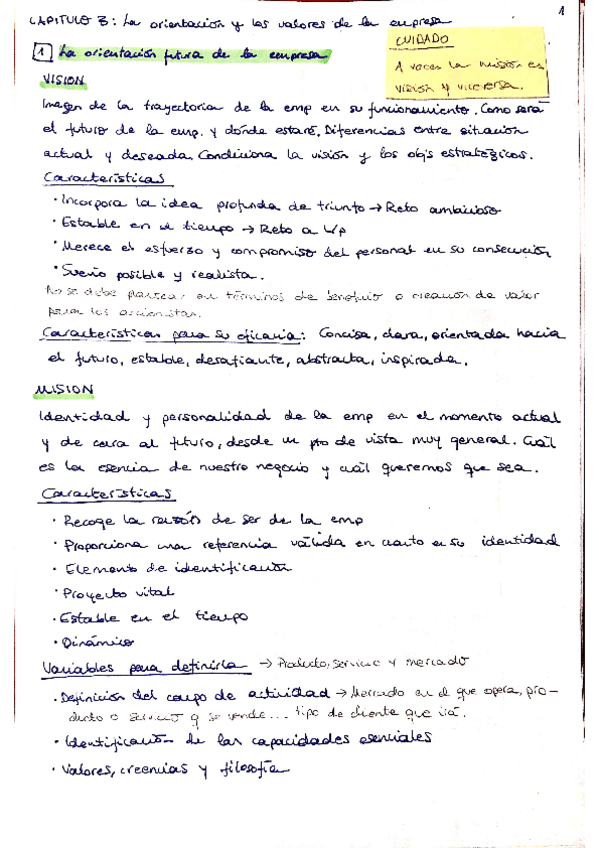 1
CAPITULO 3: La orientación y los valores de la empresa
CUIDADO
A veces la misión es
visión y viceversa.
1 La orientación futura de la empresa
VISION
Imagen de la trayectoria de la emp en su funcionamiento. Como será
el futuro de la emp. y dónde estará. Diferencias entre situación
actual y deseada. Condiciona la visión y los objs estratégicos.
Características
· Incorpora la idea profunda de triunfo → Reto ambicioso
· Estable en el tiempo → Reto a L/p
· Merece el esfuerzo y compromiso del personal en su consecución
· Sueño posible y realista.
No se debe plantear en términos de beneficio o creación de valor
para los accionistas.
Características para su eficacia: Concisa, clara, orientada hacia
el futuro, estable, desafiante, abstracta, inspirada.
MISION
Identidad y personalidad de la emp en el momento actual
y de cara al futuro, desde un pto de vista muy general. Cuál
es la esencia de nuestro negocio y cuál queremos que sea.
Características
· Recoge la razón de ser de la emp
· Proporciona una referencia válida en cuanto a su identidad
· Elemento de identificación
· Proyecto vital
· Estable en el tiempo
· Dinámico
Variables para definirla → Producto, servicio y mercado
· Definición del campo de actividad → Mercado en el que opera, pro-
ducto o servicio q se vende... tipo de cliente que irá.
· Identificación de las capacidades esenciales
· Valores, creencias y filosofía